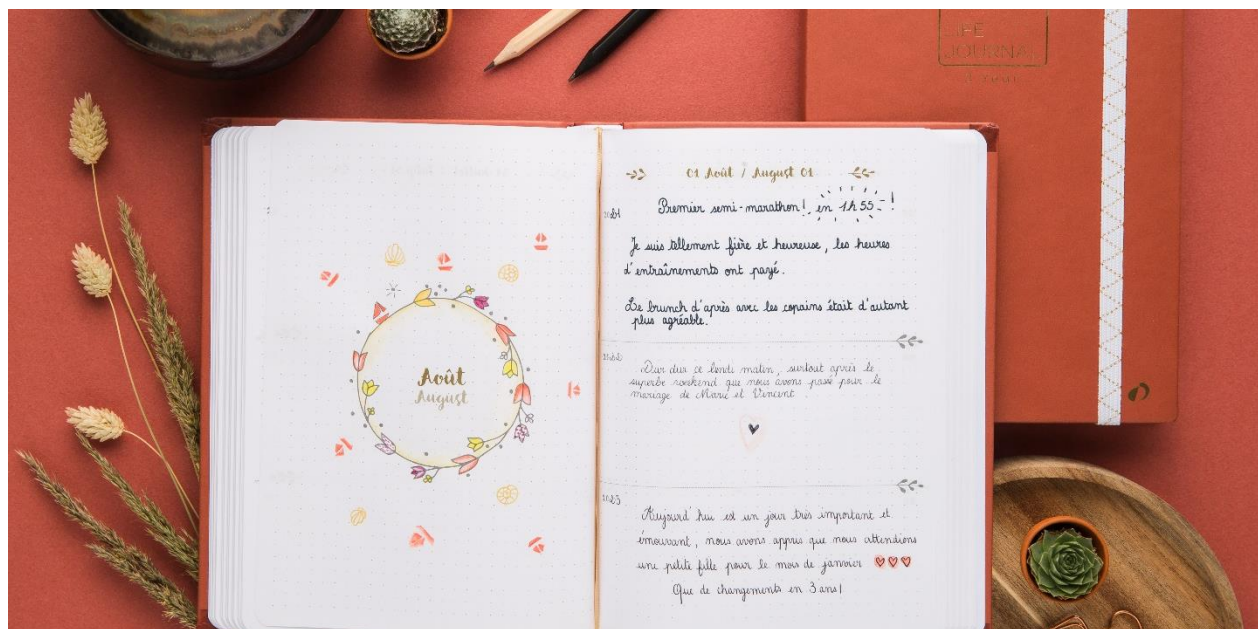 LIFE
JOURNAL
Août
August
01 Août / August 01
2021
Premier semi-marathon ! en 1h55 !
Je suis tellement fière et heureuse, les heures
d'entraînements ont payé.
Le brunch d'après avec les copains était d'autant
plus agréable.
2022
Dur dur ce lundi matin, surtout après le
superbe weekend que nous avons passé pour le
mariage de Marie et Vincent.
2023
Aujourd'hui est un jour très important et
émouvant, nous avons appris que nous attendions
une petite fille pour le mois de janvier
Que de changements en 3 ans!